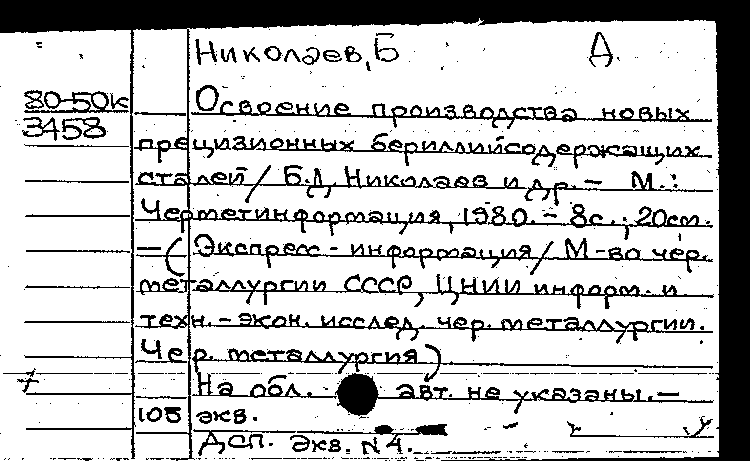 Николаев, Б Д
80-50к
3458
Освоение производства новых
прецизионных бериллийсодержащих
сталей / Б.Д, Николаев и др. - М.:
Черметинформация, 1980. - 8с.; 20см.
— (Экспресс - информация / М-во чер.
металлургии СССР, ЦНИИ информ. и
техн.-экон. исслед. чер. металлургии.
Чер. металлургия).
На обл. авт. не указаны. —
105 экв.
Дсп. Экв. N 4.